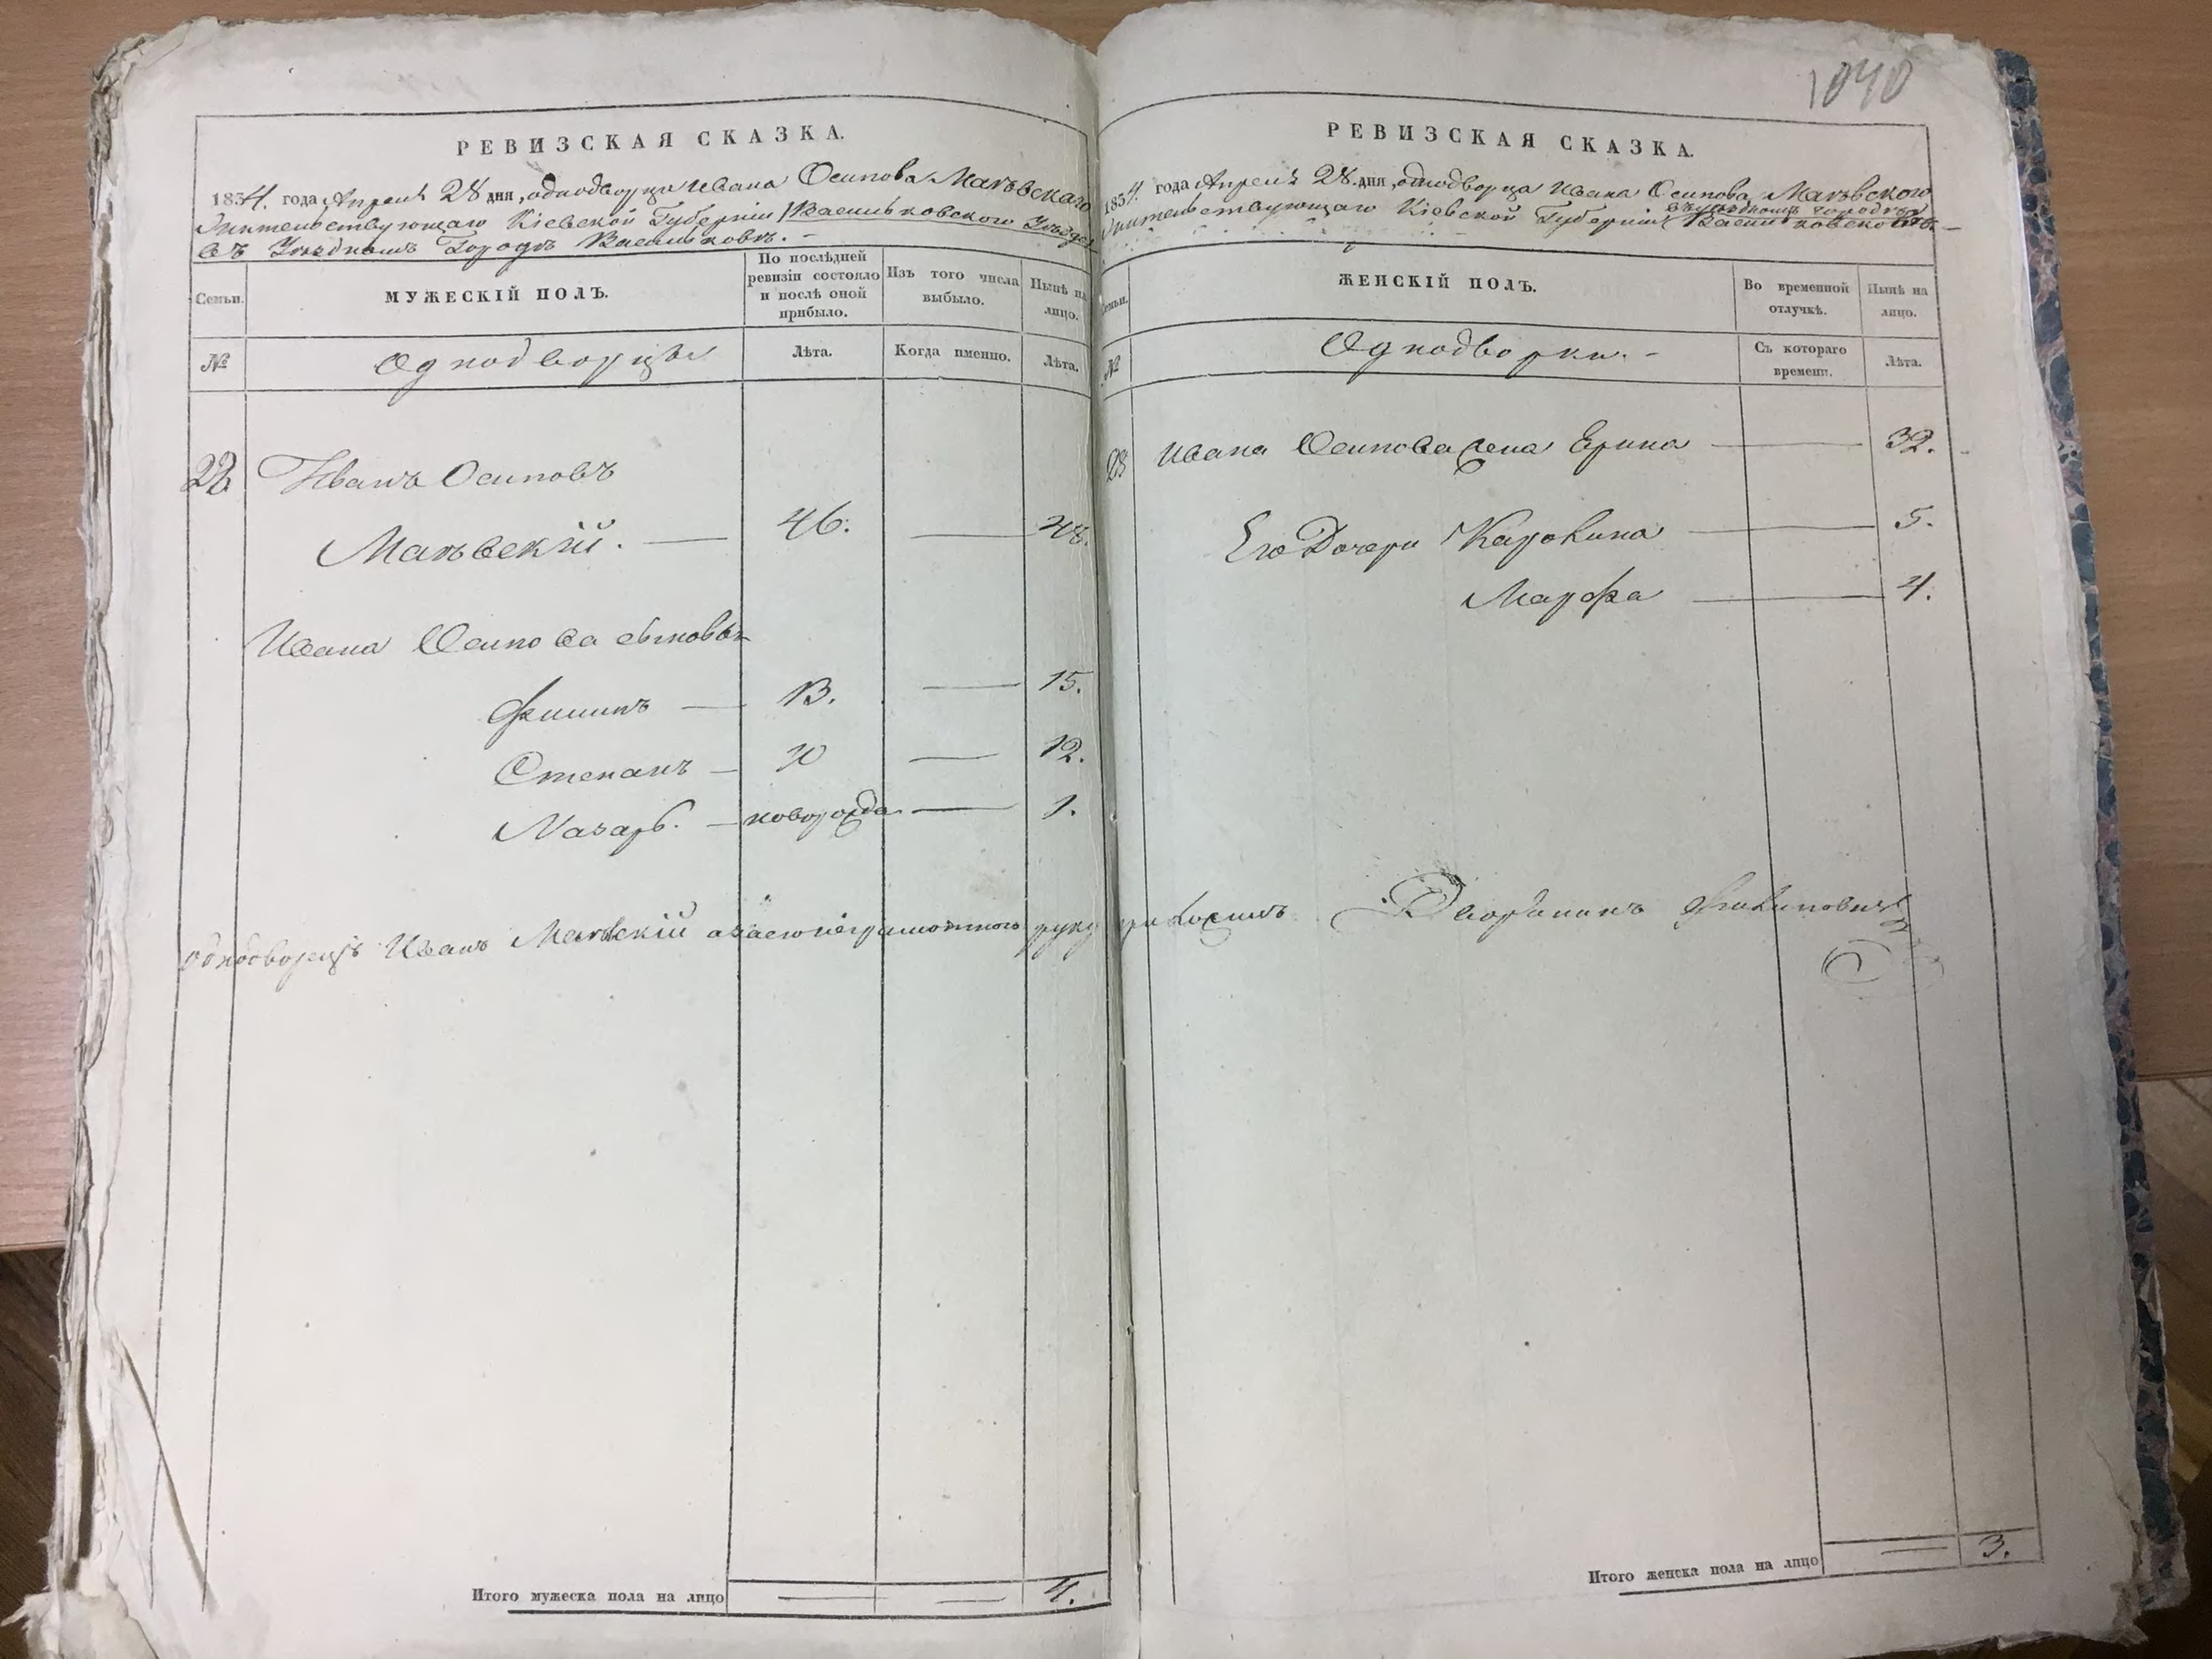 1040
РЕВИЗСКАЯ СКАЗКА.
1834. года Апреля 28 дня, однодворца Ивана Осипова Маньвскаго
Жительствующаго Кіевской Губерніи Васильковского Уѣзда
въ Уѣздномъ Городѣ Васильковѣ.
Семьи.
МУЖЕСКІЙ ПОЛЪ.
По послѣдней ревизіи состояло и послѣ оной прибыло.
Изъ того числа выбыло.
Нынѣ на лицо.
№
Однодворцы
Лѣта.
Когда именно.
Лѣта.
22
Иванъ Осиповъ
46.
48.
Ивана Осипова сыновья
Филипъ — 13. — 15.
Степанъ — 10 — 12.
Назаръ. — новорожде — 1.
однодворецъ Иванъ
руку приложилъ Дворянинъ
Итого мужеска пола на лицо — — 4.
РЕВИЗСКАЯ СКАЗКА.
1834 года Апреля 28 дня, однодворца Ивана Осипова
Жительствующаго Кіевской Губерніи Васильковского
въ уѣздномъ городѣ
Семьи.
ЖЕНСКІЙ ПОЛЪ.
Во временной отлучкѣ.
Нынѣ на лицо.
№
Однодворки.
Съ котораго времени.
Лѣта.
Ивана Осипова жена Ерина — 32.
Его Дочери Каролина — 5.
Марфа — 4.
Итого женска пола на лицо — 3.